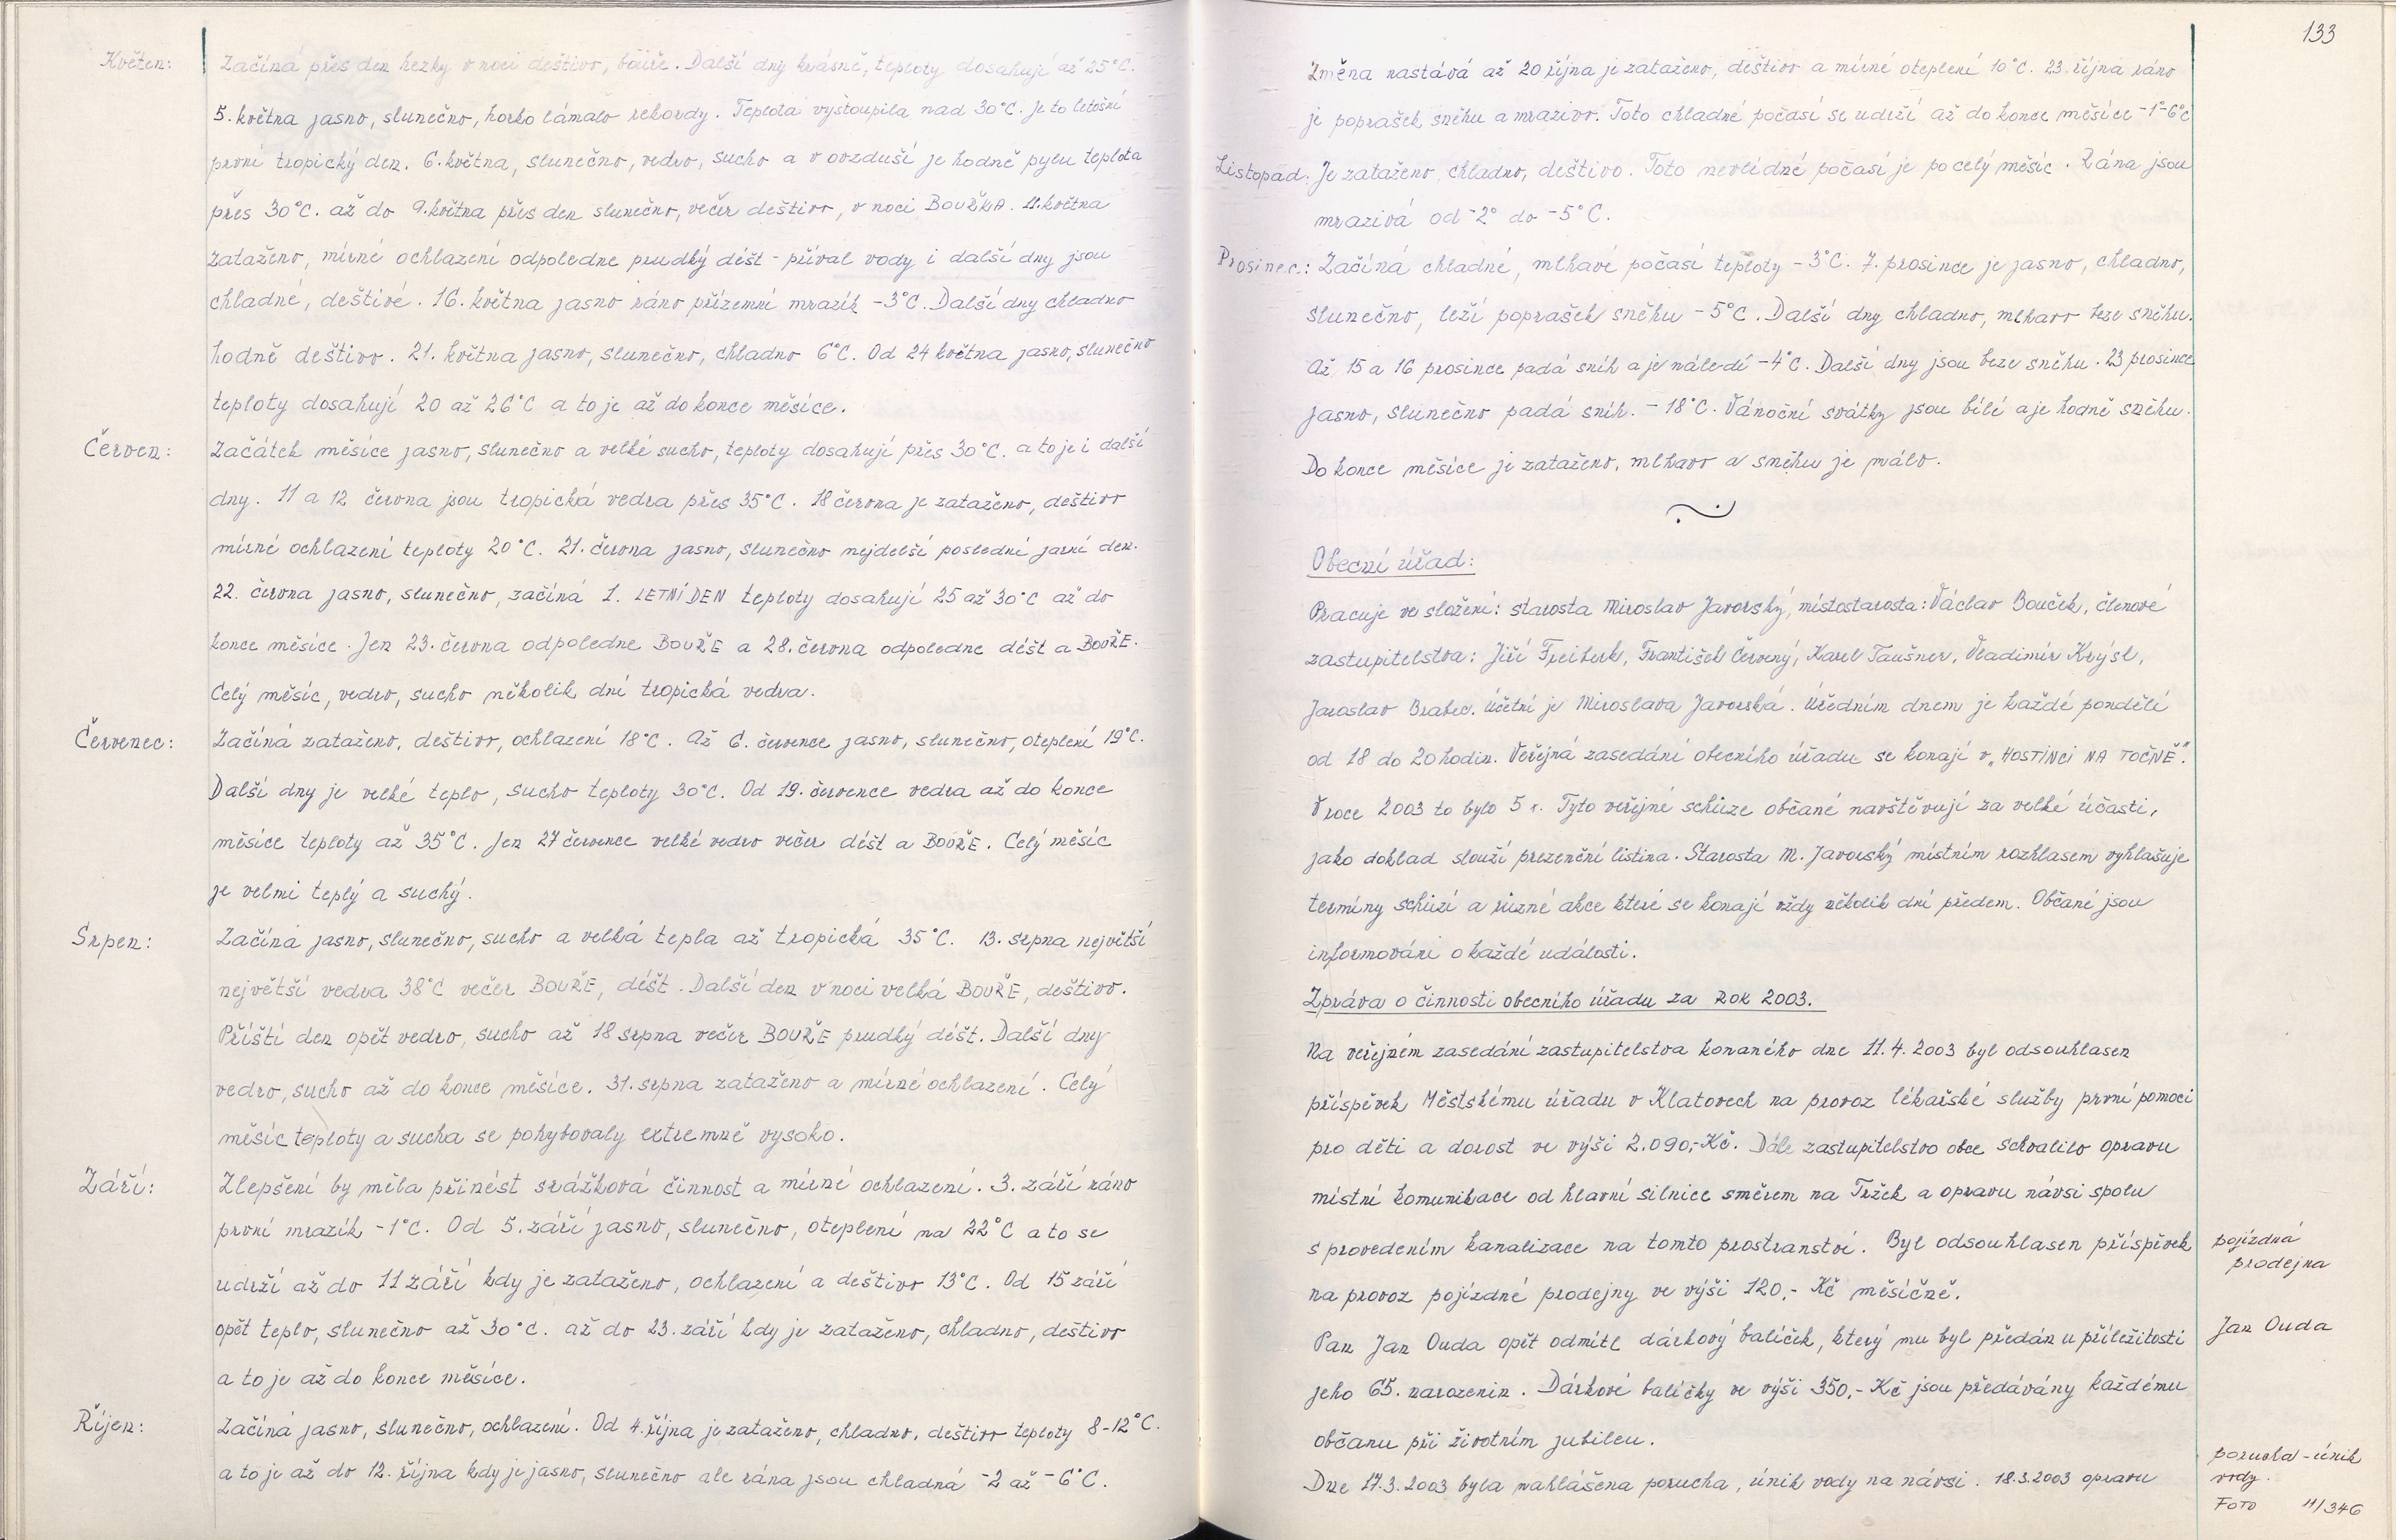 Květen: Začíná přes den hezky v noci deštivo, bouře. Další dny krásně, teploty dosahují až 25°C.
5. května jasno, slunečno, horko lámalo rekordy. Teplota vystoupila nad 30°C. je to letošní
první tropický den. 6. května, slunečno, vedro, sucho a v ovzduší je hodně pylu teplota
přes 30°C. až do 9. května přes den slunečno, večer deštivo, v noci BOUŘKA. 11. května
zataženo, mírné ochlazení odpoledne prudký déšt - příval vody i další dny jsou
chladné, deštivé. 16. května jasno ráno přízemní mrazík -3°C. Další dny chladno
hodně deštivo. 21. května jasno, slunečno, chladno 6°C. Od 24 května jasno, slunečno
teploty dosahují 20 až 26°C a to je až do konce měsíce.
Červen: Začátek měsíce jasno, slunečno a velké sucho, teploty dosahují přes 30°C. a to je i další
dny. 11 a 12 června jsou tropická vedra přes 35°C. 18 června je zataženo, deštivo
mírné ochlazení teploty 20°C. 21. června jasno, slunečno nejdelší poslední jarní den.
22. června jasno, slunečno, začíná 1. LETNÍ DEN teploty dosahují 25 až 30°C až do
konce měsíce. Jen 23. června odpoledne BOUŘE a 28. června odpoledne déšt a BOUŘE.
Celý měsíc, vedro, sucho několik dní tropická vedra.
Červenec: Začíná zataženo, deštivo, ochlazení 18°C. Až 6. července jasno, slunečno, oteplení 19°C.
Další dny je velké teplo, sucho teploty 30°C. Od 19. července vedra až do konce
měsíce teploty až 35°C. Jen 27 července velké vedro večer déšt a BOUŘE. Celý měsíc
je velmi teplý a suchý.
Srpen: Začíná jasno, slunečno, sucho a velká tepla až tropická 35°C. 13. srpna největší
největší vedra 38°C večer BOUŘE, déšt. Další den v noci velká BOUŘE, deštivo.
Příští den opět vedro, sucho až 18 srpna večer BOUŘE prudký déšt. Další dny
vedro, sucho až do konce měsíce. 31. srpna zataženo a mírné ochlazení. Celý
měsíc teploty a sucha se pohybovaly extremně vysoko.
Září: Zlepšení by měla přinést srážková činnost a mírné ochlazení. 3. září ráno
první mrazík -1°C. Od 5. září jasno, slunečno, oteplení na 22°C a to se
udrží až do 11 září kdy je zataženo, ochlazení a deštivo 13°C. Od 15 září
opět teplo, slunečno až 30°C. až do 23. září kdy je zataženo, chladno, deštivo
a to je až do konce měsíce.
Říjen: Začíná jasno, slunečno, ochlazení. Od 4. října je zataženo, chladno, deštivo teploty 8-12°C.
a to je až do 12. října kdy je jasno, slunečno ale rána jsou chladná -2 až -6°C.
133
Změna nastává až 20 října je zataženo, deštivo a mírné oteplení 10°C. 23. října ráno
je poprašek sněhu a mrazivo. Toto chladné počasí se udrží až do konce měsíce -1°-6°C
Listopad: Je zataženo, chladno, deštivo. Toto nevlídné počasí je po celý měsíc. Rána jsou
mrazivá od -2° do -5°C.
Prosinec: Začíná chladné, mlhavé počasí teploty -3°C. 7. prosince je jasno, chladno,
slunečno, leží poprašek sněhu -5°C. Další dny chladno, mlhavo beze sněhu.
Až 15 a 16 prosince padá sníh a je náledí -4°C. Další dny jsou beze sněhu. 23 prosince
jasno, slunečno padá sníh. -18°C. Vánoční svátky jsou bílé a je hodně sněhu.
Do konce měsíce je zataženo, mlhavo a sněhu je málo.
Obecní úřad:
Pracuje ve složení: starosta Miroslav Javorský, místostarosta: Václav Bouček, členové
zastupitelstva: Jiří Freiberk, František Červený, Karel Taušner, Vladimír Krýsl,
Jaroslav Brabec. Účetní je Miroslava Javorská. Úředním dnem je každé pondělí
od 18 do 20 hodin. Veřejná zasedání obecního úřadu se konají v „HOSTINCI NA TOČNĚ".
V roce 2003 to bylo 5 x. Tyto veřejné schůze občané navštěvují za velké účasti,
jako doklad slouží prezenční listina. Starosta M. Javorský místním rozhlasem vyhlašuje
termíny schůzí a různé akce které se konají vždy několik dní předem. Občané jsou
informováni o každé události.
Zpráva o činnosti obecního úřadu za ROK 2003.
Na veřejném zasedání zastupitelstva konaného dne 11.4.2003 byl odsouhlasen
příspěvek Městskému úřadu v Klatovech na provoz lékařské služby první pomoci
pro děti a dorost ve výši 2.090,-Kč. Dále zastupitelstvo obce schválilo opravu
místní komunikace od hlavní silnice směrem na Tržek a opravu návsi spolu
s provedením kanalizace na tomto prostranství. Byl odsouhlasen příspěvek
pojízdná
prodejna
na provoz pojízdné prodejny ve výši 120,- Kč měsíčně.
Pan Jan Ouda opět odmítl dárkový balíček, který mu byl předán u příležitosti
Jan Ouda
jeho 65. narozenin. Dárkové balíčky ve výši 350,- Kč jsou předávány každému
občanu při životním jubileu.
Dne 17.3.2003 byla nahlášena porucha, únik vody na návsi. 18.3.2003 opravu
porucha - únik
vody.
FOTO 11/346